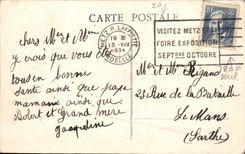 20f
CARTE POSTALE
METZ R. LAFAYETTE
19 H
13 -VIII
MOSELLE
VISITEZ METZ
FOIRE EXPOSITION
SEPTbre OCTOBRE
chers Mr et Mme
je vois que vous êtes
tous en bonne
santé ainsi que papa
maman ainsi que
et Grand mère
Jacqueline
Mr et Mme Rigaud
23 Rue de la Bataille
Le Mans
(Sarthe)